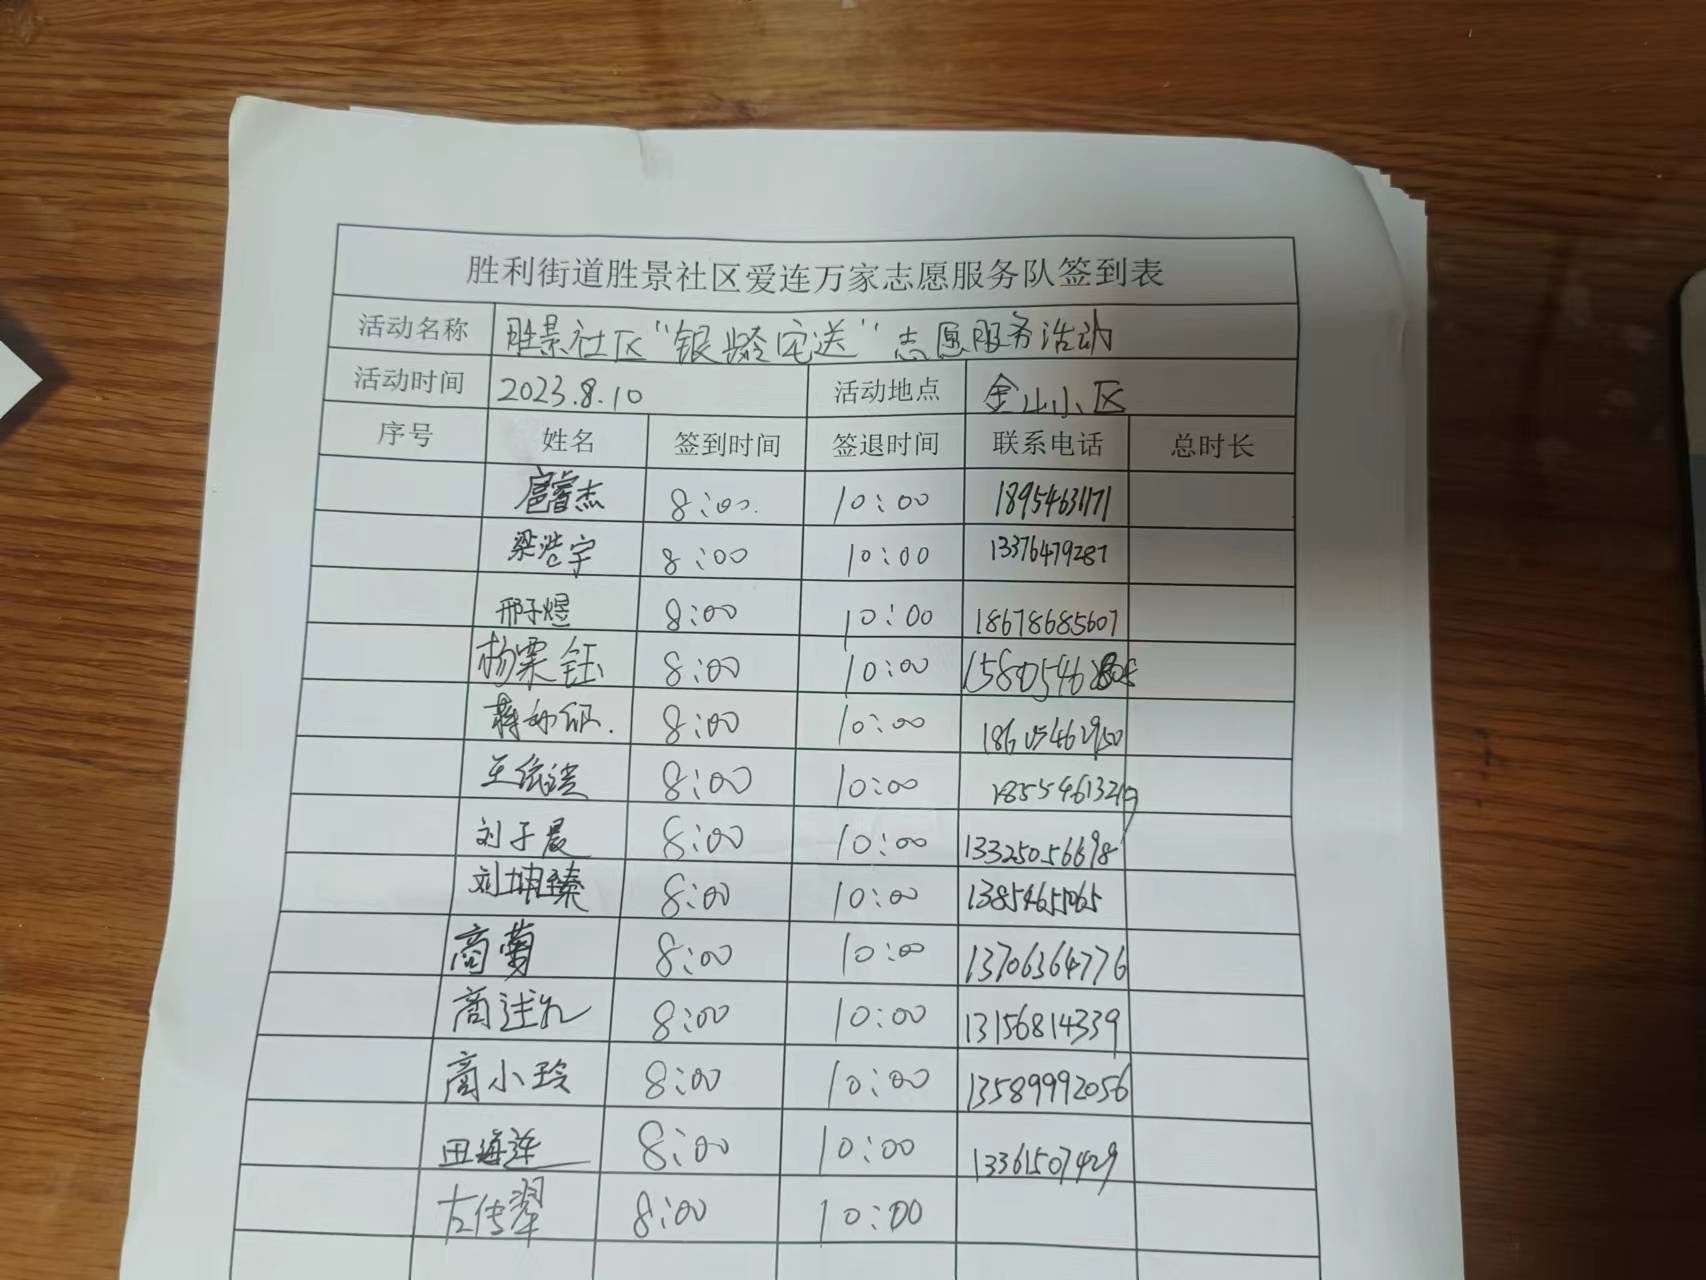 胜利街道胜景社区爱连万家志愿服务队签到表
活动名称 胜景社区“银龄宅送”志愿服务活动
活动时间 2023.8.10 活动地点 金山小区
序号 姓名 签到时间 签退时间 联系电话 总时长
扈睿杰 8:00 10:00 18954631171
梁浩宇 8:00 10:00 13376479287
邢子煜 8:00 10:00 18678685607
杨霂钰 8:00 10:00
8:00 10:00 18605462950
8:00 10:00 18554613219
刘子晨 8:00 10:00 13325056698
刘坤臻 8:00 10:00
商菊 8:00 10:00 13706364776
商 8:00 10:00 13156814339
商小玲 8:00 10:00 13589992056
田海莲 8:00 10:00 13361507429
左传翠 8:00 10:00